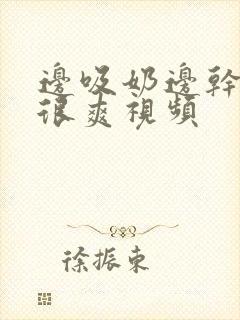 邊吸奶邊幹
很爽視頻
徐振東